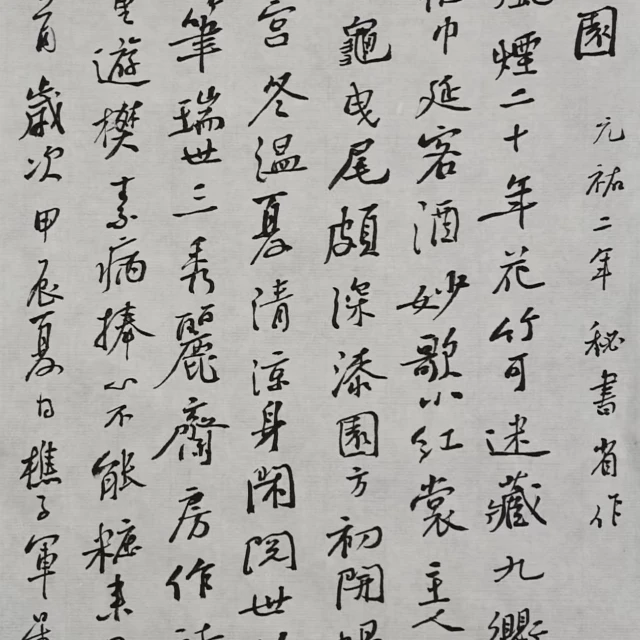 園 元祐二年秘書省作
煙二十年花竹可迷藏九
巾延客酒妙歌小紅裳主人
龜曳尾頗深漆園方初開
宮冬温夏清涼身閑閲世
筆瑞世三秀麗齋房作
遊樊素病捧心不能糚
歲次甲辰夏日樵子軍